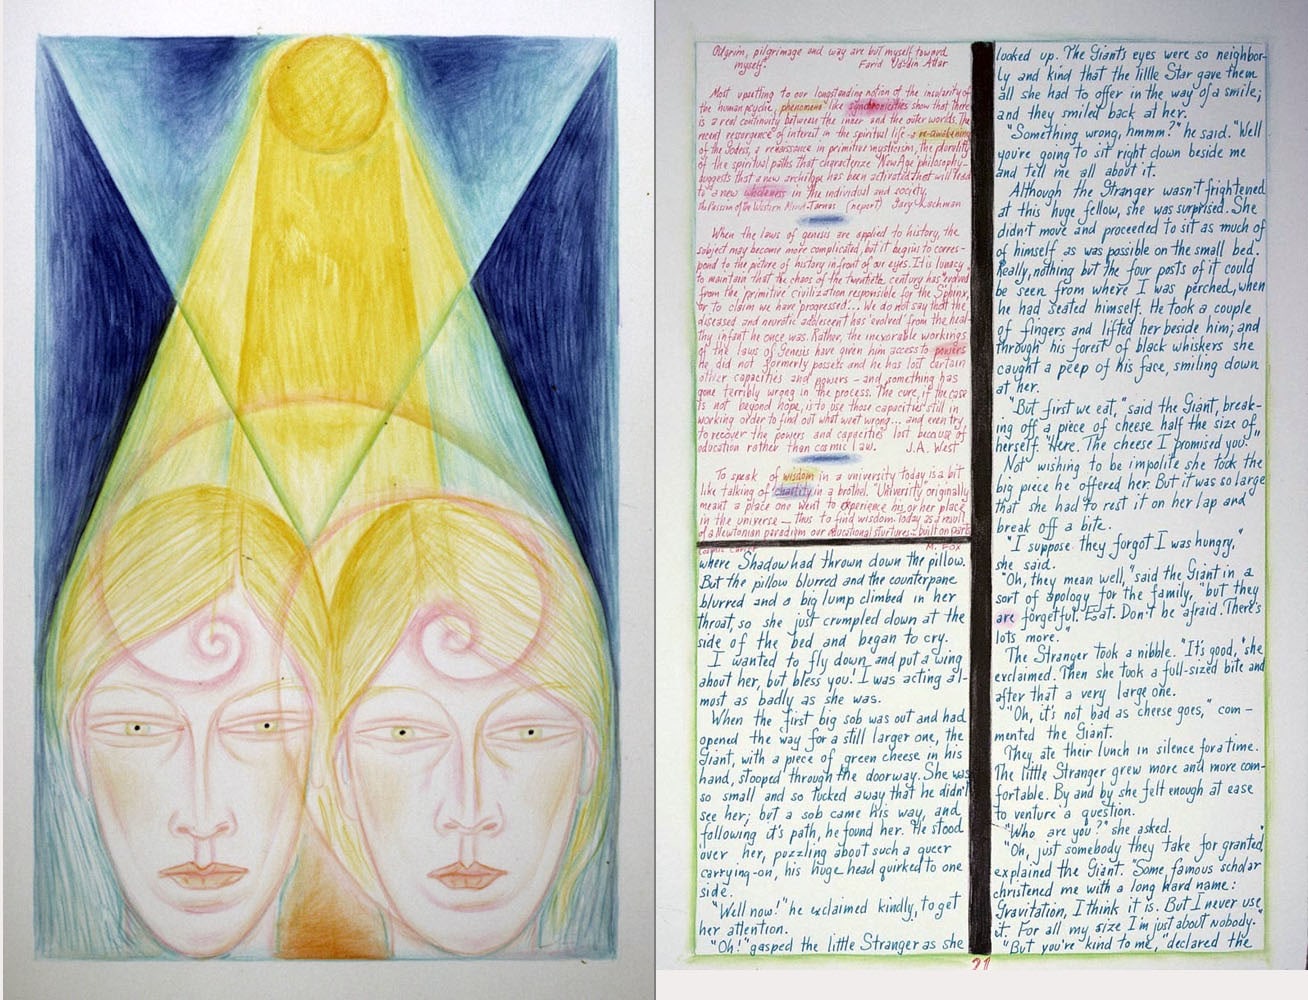 Pilgrim, pilgrimage and way are but myself toward
myself. Farid Ud-din Attar
Most upsetting to our longstanding notion of the insularity of
the human psyche, phenomena like synchronicities show that there
is a real continuity between the inner and the outer worlds. The
recent resurgence of interest in the spiritual life - a re-awakening
of the Godess, a renaissance in primitive mysticism, the plurality
of the spiritual paths that characterize New Age philosophy -
suggests that a new archetype has been activated that will lead
to a new wholeness in the individual and society.
the Passion of the Western Mind - Tarnas (report) Gary Lachman
When the laws of genesis are applied to history, the
subject may become more complicated, but it begins to corres-
pond to the picture of history in front of our eyes. It is lunacy
to maintain that the chaos of the twentieth century has "evolved"
from the primitive civilization responsible for the Sphinx,
or to claim we have progressed... We do not say that the
diseased and neurotic adolescent has evolved from the heal-
thy infant he once was. Rather, the inexorable workings
of the laws of Genesis have given him access to powers
he did not formerly possess and he has lost certain
other capacities and powers - and something has
gone terribly wrong in the process. The cure, if the case
is not beyond hope, is to use those capacities still in
working order to find out what went wrong... and even try
to recover the powers and capacities lost because of
education rather than cosmic law. J.A. West
To speak of wisdom in a university today is a bit
like talking of chastity in a brothel. "University" originally
meant a place one went to experience his or her place
in the universe - thus to find wisdom. Today as a result
of a Newtonian paradigm our educational sturtures - built on parts
Cosmic Christ M. Fox
where Shadow had thrown down the pillow.
But the pillow blurred and the counterpane
blurred and a big lump climbed in her
throat, so she just crumpled down at the
side of the bed and began to cry.
I wanted to fly down and put a wing
about her, but bless you! I was acting al-
most as badly as she was.
When the first big sob was out and had
opened the way for a still larger one, the
Giant, with a piece of green cheese in his
hand, stooped through the doorway. She was
so small and so tucked away that he didn't
see her; but a sob came his way, and
following it's path, he found her. He stood
over her, puzzling about such a queer
carrying-on, his huge head quirked to one
side.
"Well now!" he exclaimed kindly, to get
her attention.
"Oh!" gasped the little Stranger as she
looked up. The Giant's eyes were so neighbor-
ly and kind that the little Star gave them
all she had to offer in the way of a smile;
and they smiled back at her.
"Something wrong, hmmm?" he said. "Well
you're going to sit right down beside me
and tell me all about it.
Although the Stranger wasn't frightened
at this huge fellow, she was surprised. She
didn't move and proceeded to sit as much of
of himself as was possible on the small bed.
Really, nothing but the four posts of it could
be seen from where I was perched, when
he had seated himself. He took a couple
of fingers and lifted her beside him; and
through his forest of black whiskers she
caught a peep of his face, smiling down
at her.
"But first we eat," said the Giant, break-
ing off a piece of cheese half the size of
herself. "Here. The cheese I promised you."
Not wishing to be impolite she took the
big piece he offered her. But it was so large
that she had to rest it on her lap and
break off a bite.
"I suppose they forgot I was hungry,"
she said.
"Oh, they mean well," said the Giant in a
sort of apology for the family, "but they
are forgetful. Eat. Don't be afraid. There's
lots more."
The Stranger took a nibble. "It's good," she
exclaimed. Then she took a full-sized bite and
after that a very large one.
"Oh, it's not bad as cheese goes," com-
mented the Giant.
They ate their lunch in silence for a time.
The little Stranger grew more and more com-
fortable. By and by she felt enough at ease
to venture a question.
"Who are you?" she asked.
"Oh, just somebody they take for granted,"
explained the Giant. "Some famous scholar
christened me with a long hard name:
Gravitation, I think it is. But I never use
it. For all my size I'm just about nobody."
"But you're kind to me," declared the
21